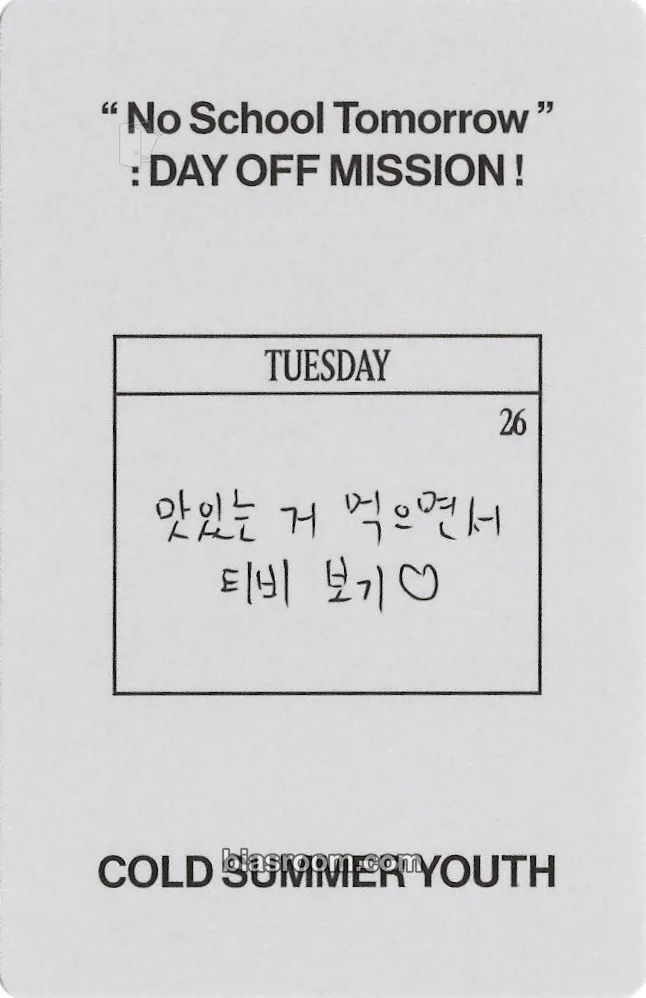 “ No School Tomorrow ”
: DAY OFF MISSION !
TUESDAY
26
맛있는 거 먹으면서
티비 보기♡
biasroom.com
COLD SUMMER YOUTH